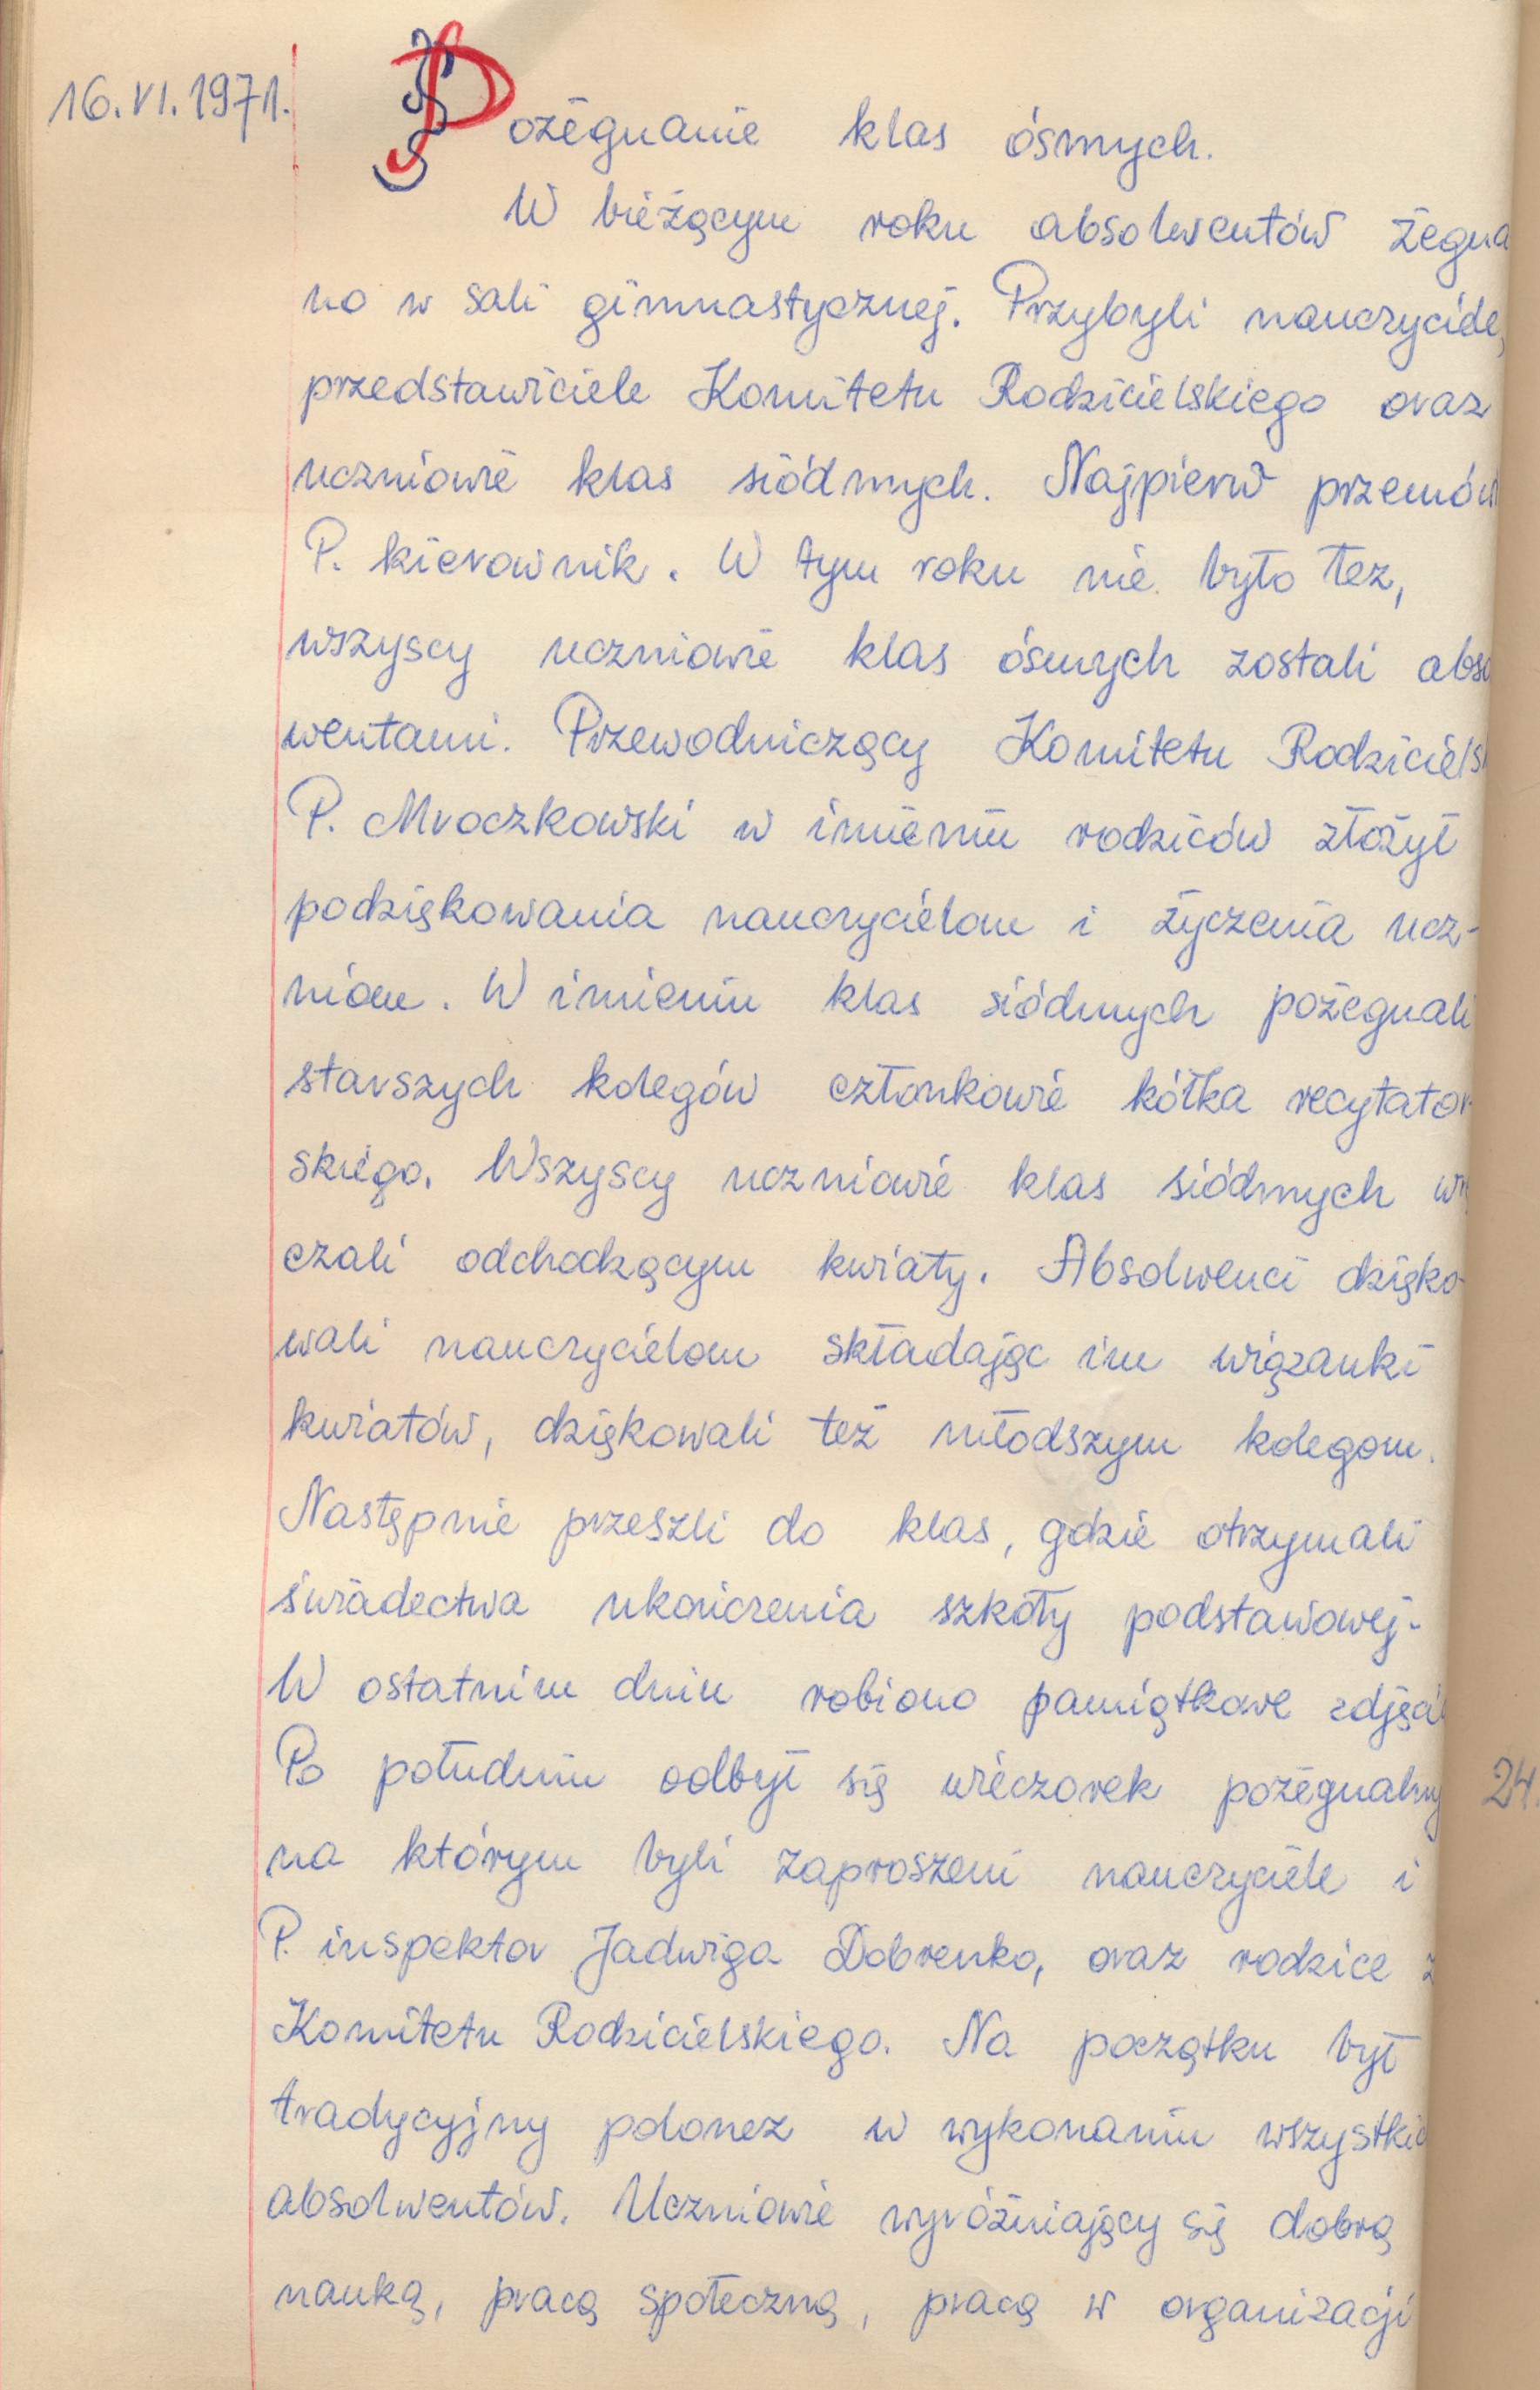 16.VI.1971.
Pożegnanie klas ósmych.
W bieżącym roku absolwentów żegna
no w sali gimnastycznej. Przybyli nauczyciele,
przedstawiciele Komitetu Rodzicielskiego oraz
uczniowie klas siódmych. Najpierw przemówi
P. kierownik. W tym roku nie było łez,
wszyscy uczniowie klas ósmych zostali abso
wentami. Przewodniczący Komitetu Rodziciels
P. Mroczkowski w imieniu rodziców złożył
podziękowania nauczycielom i życzenia ucz-
niom. W imieniu klas siódmych pożegnali
starszych kolegów członkowie kółka recytator
skiego. Wszyscy uczniowie klas siódmych wrę
czali odchodzącym kwiaty. Absolwenci dzięko-
wali nauczycielom składając im wiązanki
kwiatów, dziękowali też młodszym kolegom.
Następnie przeszli do klas, gdzie otrzymali
świadectwa ukończenia szkoły podstawowej.
W ostatnim dniu robiono pamiątkowe zdjęci
Po południu odbył się wieczorek pożegnalny
24.
na którym byli zaproszeni nauczyciele i
P. inspektor Jadwiga Dobrenko, oraz rodzice z
Komitetu Rodzicielskiego. Na początku był
tradycyjny polonez w wykonaniu wszystkic
absolwentów. Uczniowie wyróżniający się dobrą
nauką, pracą społeczną, pracą w organizacji